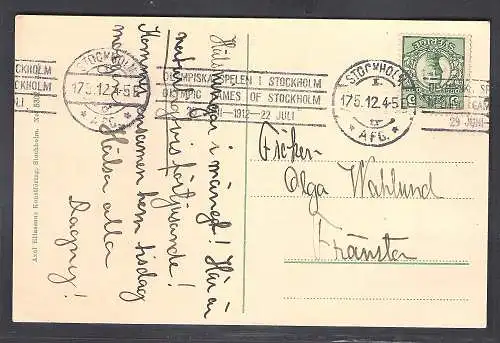 STOCKHOLM
17.5.12.4-5 E
* AFG. *
OLYMPISKA SPELEN I STOCKHOLM
OLYMPIC GAMES OF STOCKHOLM
1912—22 JULI
STOCKHOLM
17.5.12.4-5 E
* AFG. *
KHOLM
KHOLM
LI
29 JUNI
Hälsningar i mängd! Här är
naturligtvis förtjusande!
Kommer ensamen hem tisdag
Hälsa alla
Dagny!
Fröken
Olga Wahlund
Tränsta
Axel Eliassons Konstförlag, Stockholm. No